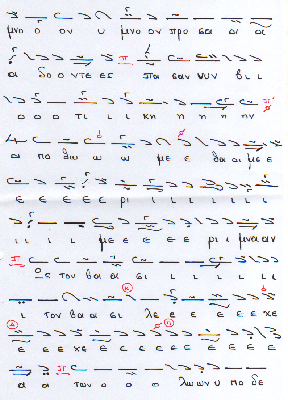 μνο ο ον υ μνο ον προ σα αι αι
αι δο ο ντε ες πα σαν νυν βι ι
ο ο ο τι ι ι κη η η η ην
α πο θω ω ω με ε θα αι με ε
ε ε ε ε ε ρι ι ι ι ι ι ι ι
ι ι ι ι με ε ε ε ε ρι ι μναν
ως τον βα α σι ι ι ι ι ι ι
ι τον βα α σι λε ε ε ε ε ε χε
ε ε ε χε ε ε ε ε ε ε ε ε ε ε
α α των ο ο ο λων υ πο δε